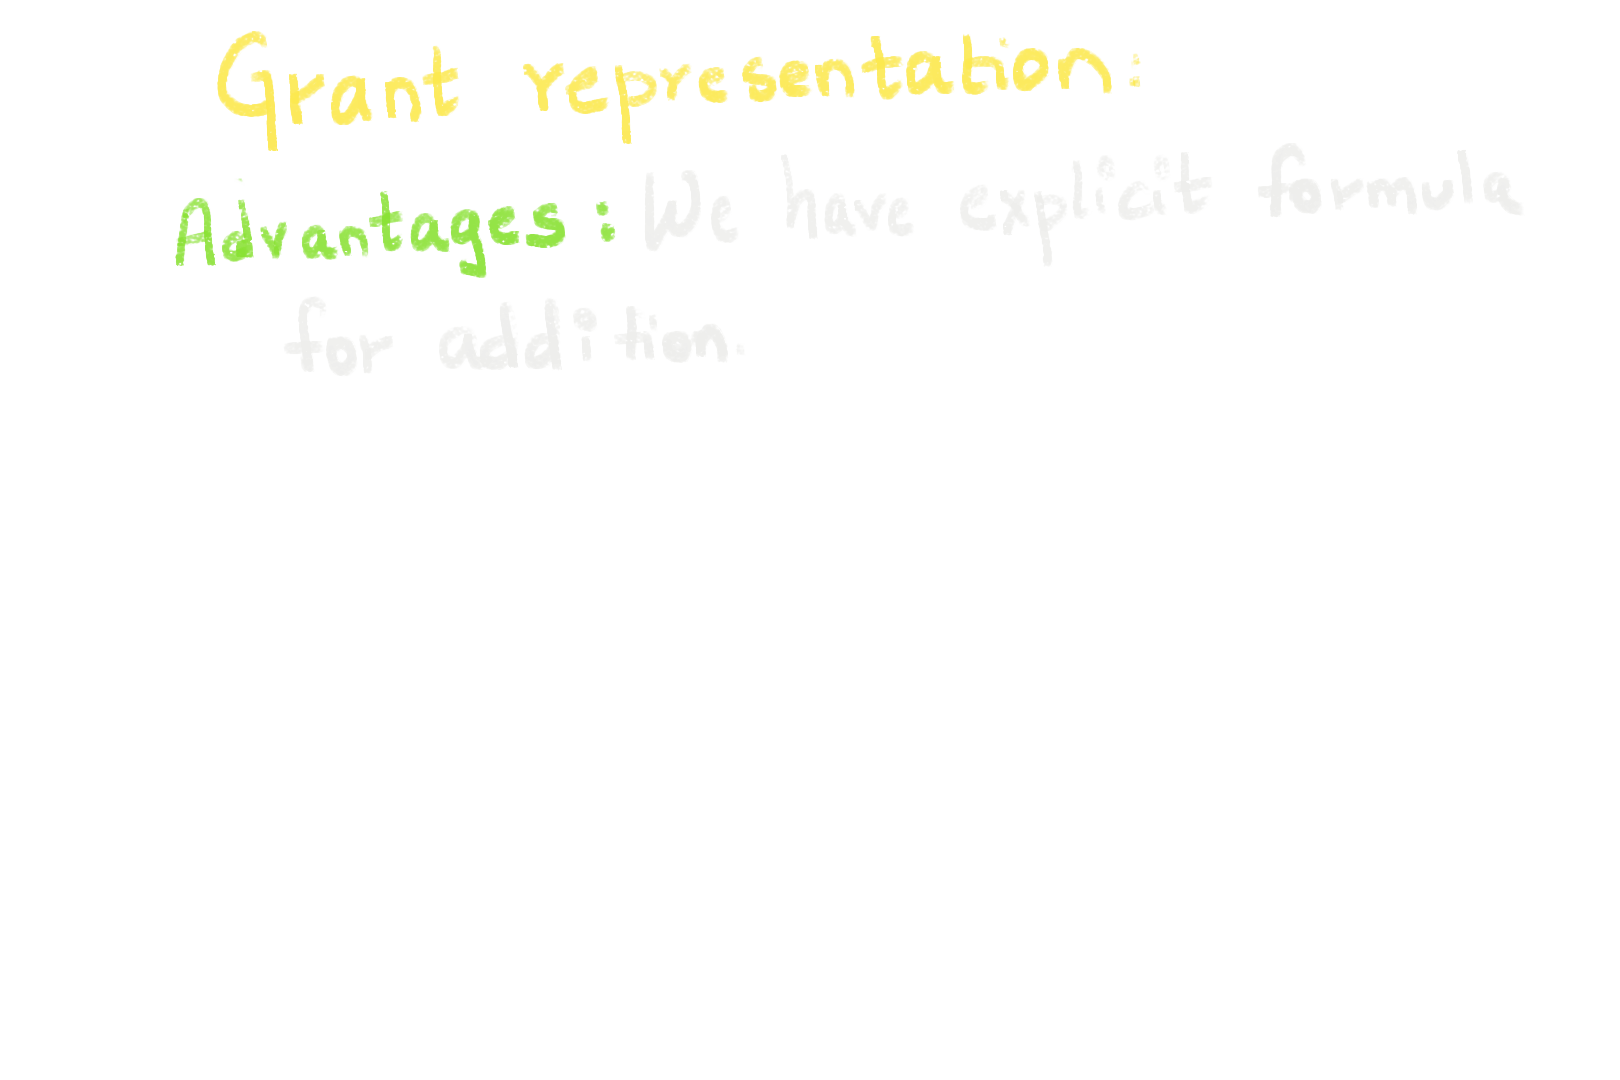 Grant representation:
Advantages: We have explicit formula
for addition.